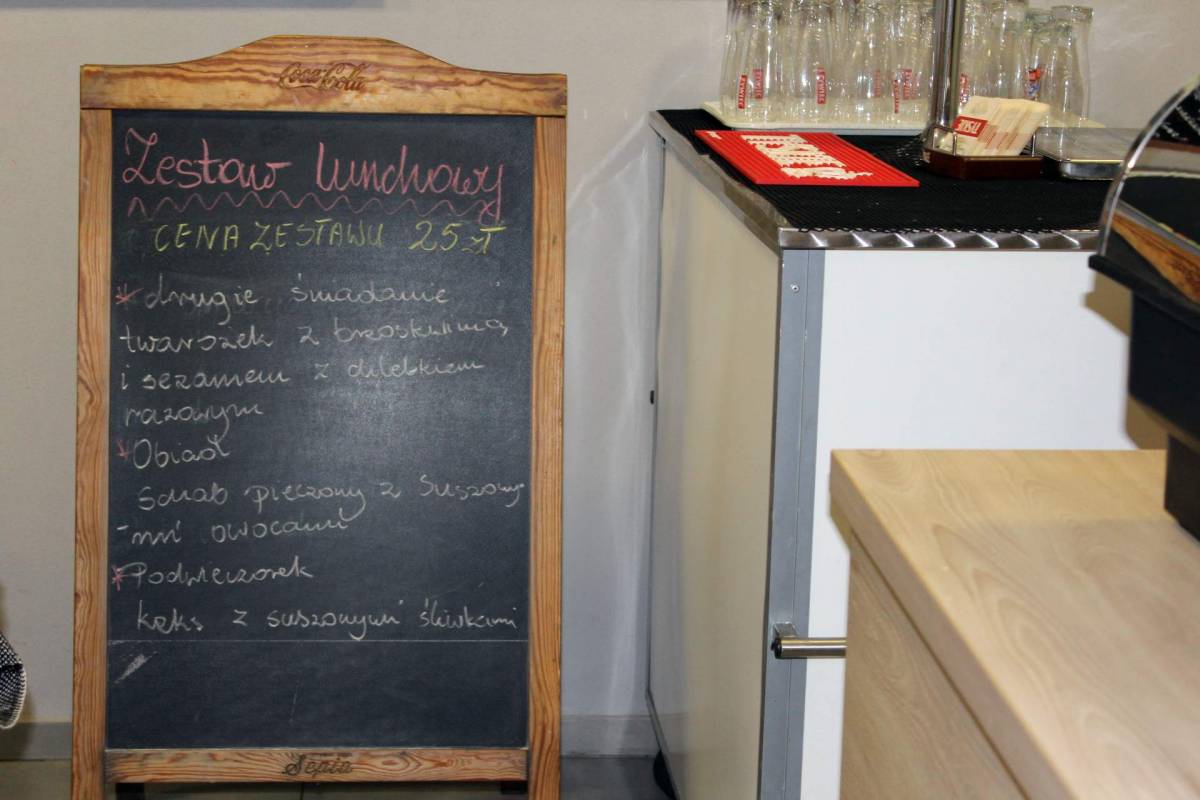 Coca-Cola
Zestaw lunchowy
CENA ZESTAWU 25 zł
* drugie śniadanie
twarożek z brzoskwinią
i sezamem z chlebkiem
razowym
* Obiad
Schab pieczony z suszony
- mi owocami
* Podwieczorek
keks z suszonymi śliwkami
Sepia
ŻYWIEC
TYSKIE